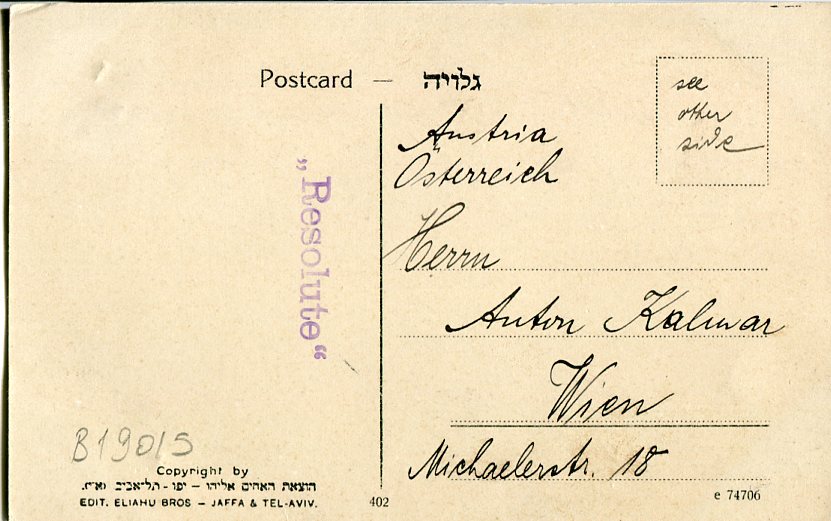 Postcard — גלויה
see
other
side
Austria
Österreich
Herrn
Anton Kalmar
Wien
Michaelerstr. 18
„Resolute“
B19015
Copyright by
הוצאת האחים אליהו – יפו - תל־אביב (א״י).
EDIT. ELIAHU BROS – JAFFA & TEL-AVIV.
402
e 74706